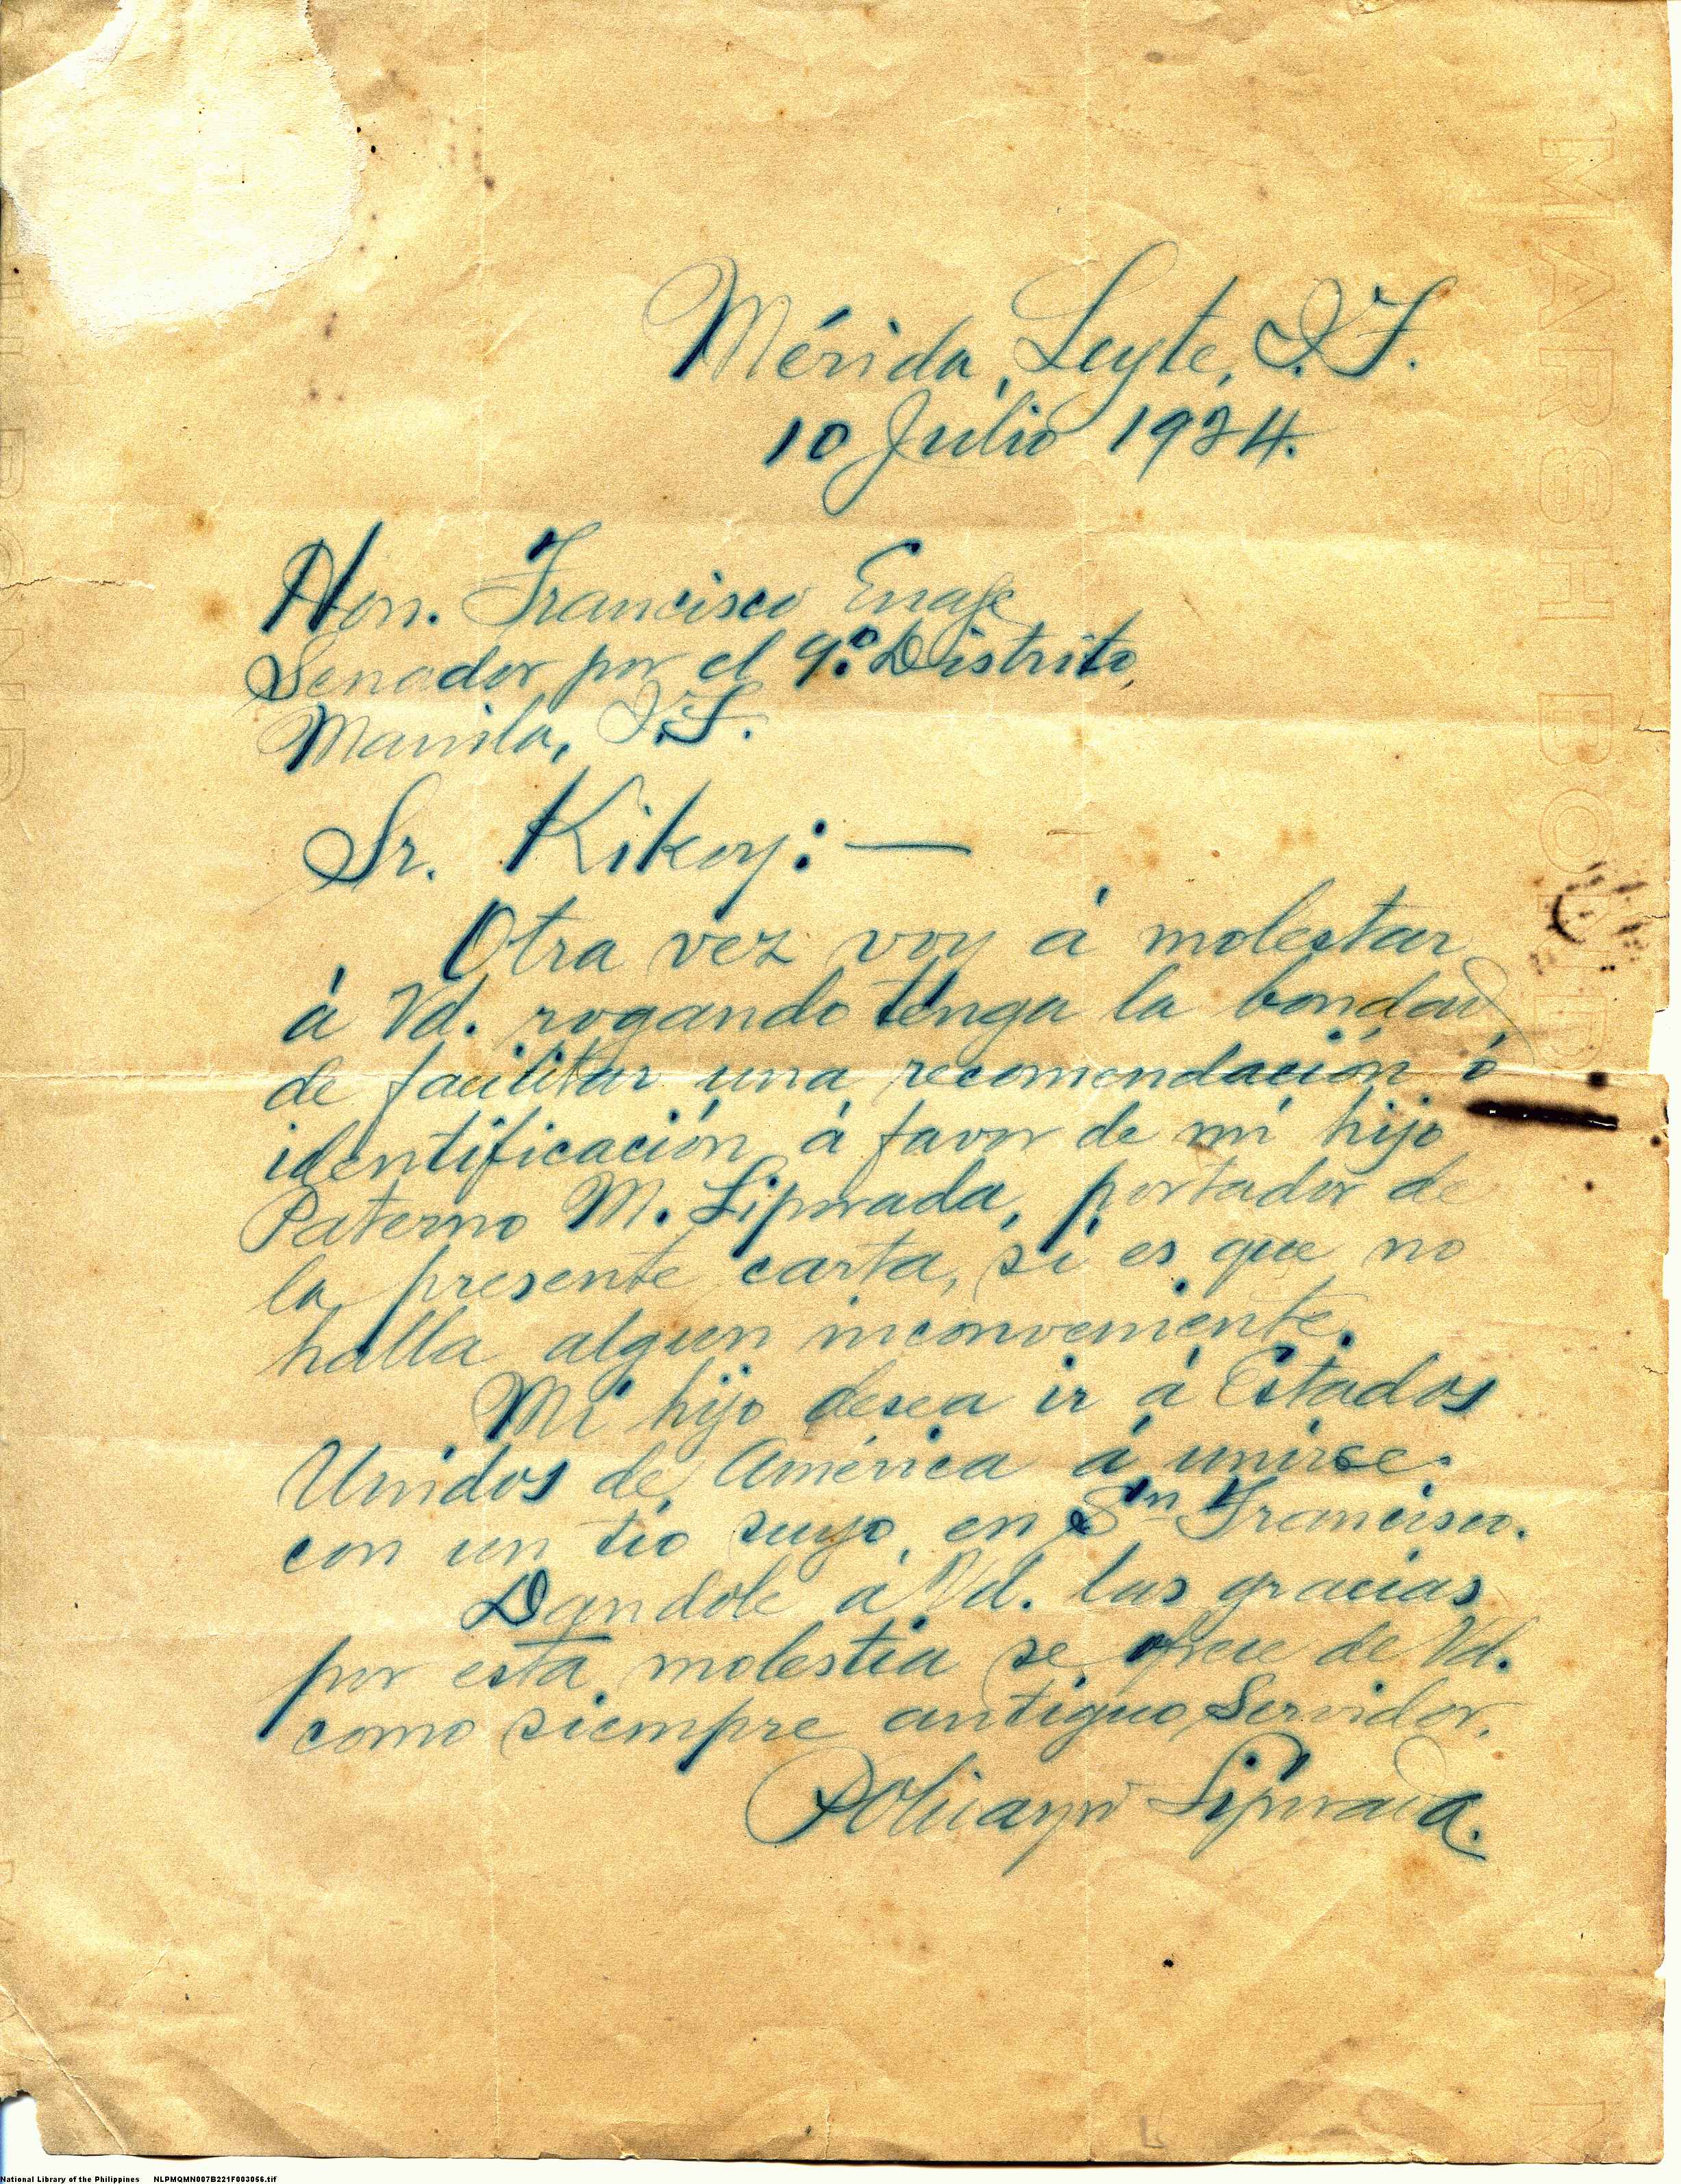 Mérida, Leyte, I.F.
10 Julio 1924.
Hon. Francisco Enage
Senador por el 9º. Distrito,
Manila, I.F.
Sr. Kikoy:—
Otra vez voy á molestar
á Vd. rogando tenga la bondad
de facilitar una recomendación ó
identificación á favor de mi hijo
Paterno M. Liporada, portador de
la presente carta, si es que no
halla algun inconveniente.
Mi hijo desea ir á Estados
Unidos de América á unirse
con un tio suyo, en Sn Francisco.
Dandole á Vd. las gracias
por esta molestia se ofrece de Vd.
como siempre antiguo Servidor.
Policarpo Liporada.
MARSH BOND
National Library of the Philippines NLPMQMN007B221F003056.tif